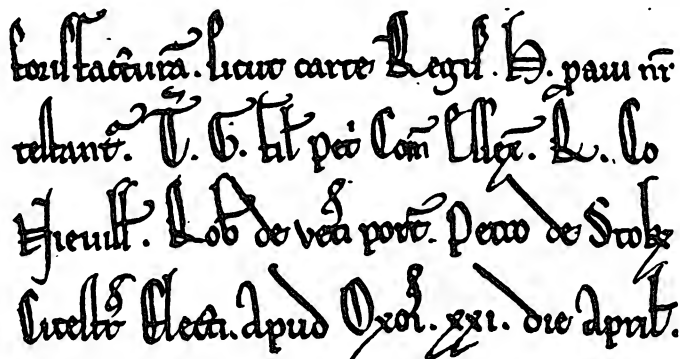 facturā. sicut carte Regis. H. paui nr̄
testant᷑. T. G. fil̛ pet̛ Com̄ Essex̄. R. Co
Neuill̛. Rob̛ de vet̛i pont̛. Petro de Stok̛
Cicestr̛ Electi. Apud Oxon̛. xxi. die April̛.